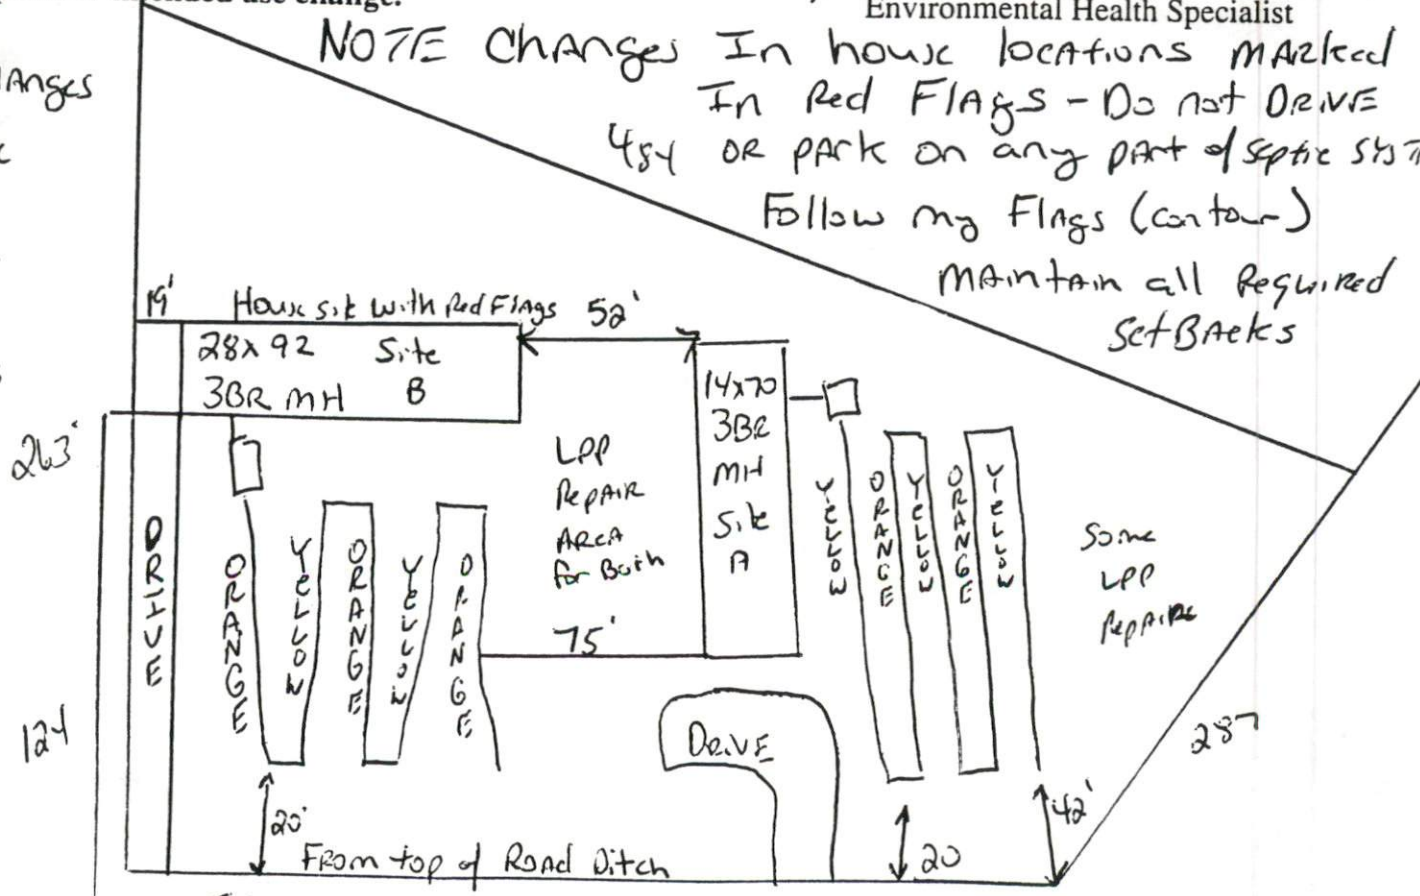 Environmental Health Specialist
NOTE Changes In house locations MARked
In Red FlAgs - Do not DRIVE
484 OR pARk on any pArt of septic sys
Follow my Flags (contour)
MAintAin all Required
SetBAcks
Anges
19'
House site with Red Flags
52'
28x92 Site
3BR MH B
14x70
3BR
MH
Site
A
263'
LPP
RepAIR
AREA
for Both
75'
DRIVE
ORANGE
YELLOW
ORANGE
YELLOW
ORANGE
YELLOW
ORANGE
YELLOW
ORANGE
YELLOW
Some
LPP
RepAIR
124
DRIVE
287
20'
From top of Road Ditch
20
42'